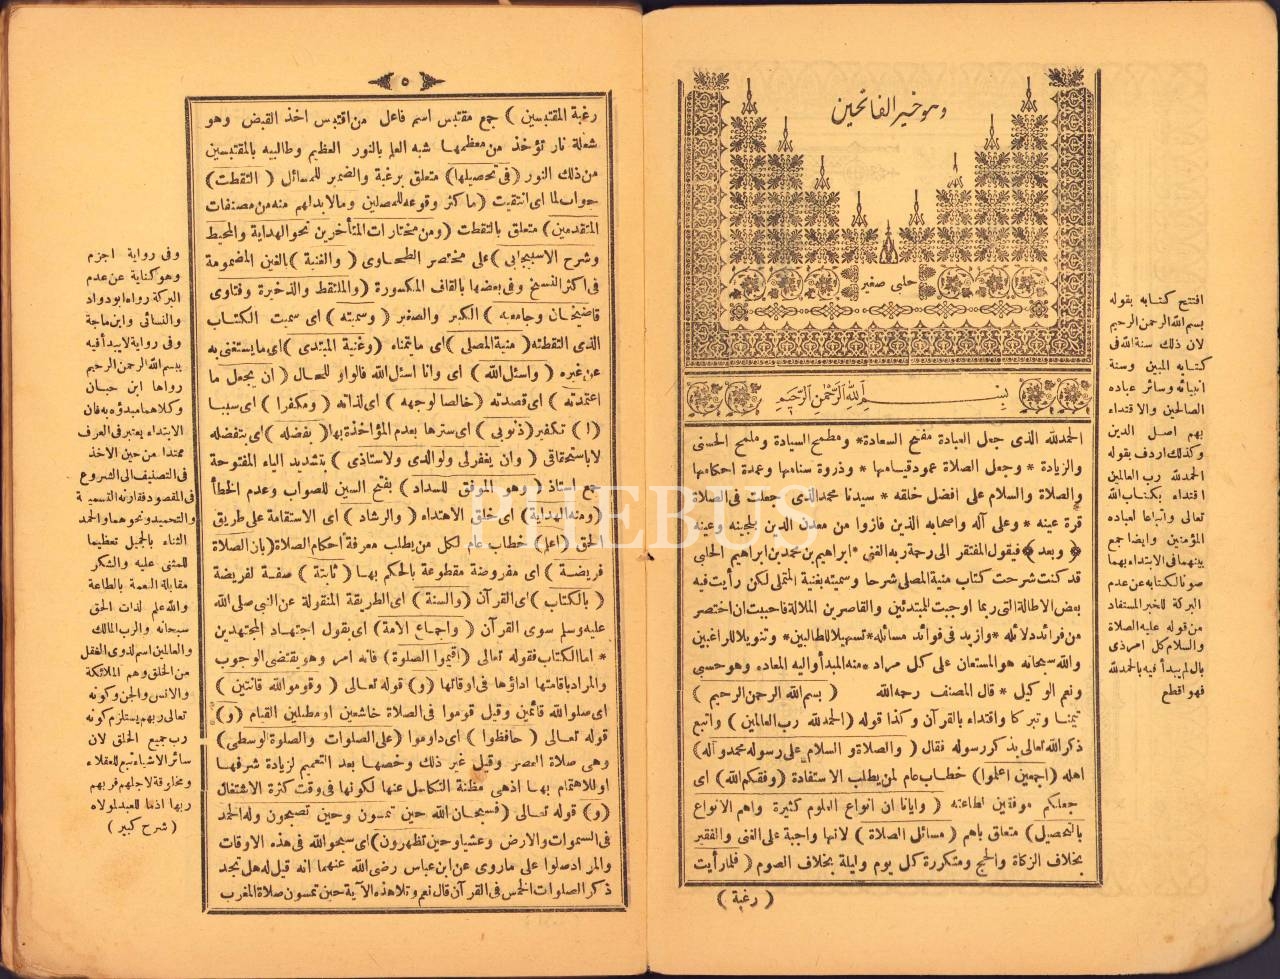 وهو خير الفاتحين
حلبي صغير
بسم الله الرحمن الرحيم
الحمدلله الذى جعل العبادة مفتح السعادة* ومطمح السيادة وملمح الحسنى
والزيادة * وجعل الصلاة عمود قيامها * وذروة سنامها وعمدة احكامها
والصلاة والسلام على افضل خلقه * سيدنا محمد الذى جعلت فى الصلاة
قرة عينه * وعلى آله واصحابه الذين فازوا من معدن الدين بلجينه وعينه
﴿ وبعد ﴾ فيقول المفتقر الى رحمة ربه الغنى * ابراهيم بن محمد بن ابراهيم الحلبى
قد كنت شرحت كتاب منية المصلى شرحا وسميته بغنية المتملى لكن رأيت فيه
بعض الاطالة التى ربما اوجبت للمبتدئين والقاصرين الملالة فاحببت ان اختصر
من فرائد دلائله * وازيد فى فوائد مسائله * تسهيلا للطالبين * وتنويلا للراغبين
والله سبحانه هو المستعان على كل مراد * منه المبدأ واليه المعاد* وهو حسبى
ونعم الوكيل * قال المصنف رحمه الله ( بسم الله الرحمن الرحيم )
تيمنا وتبركا واقتداء بالقرآن وكذا قوله (الحمدلله رب العالمين ) واتبع
ذكر الله تعالى بذكر رسوله فقال ( والصلاة و السلام على رسوله محمد و آله)
اهله (اجمعين اعلموا) خطاب عام لمن يطلب الاستفادة (وفقكم الله) اى
جعلكم موفقين لطاعته ( وايانا ان انواع العلوم كثيرة واهم الانواع
بالتحصيل) متعلق باهم ( مسائل الصلاة ) لانها واجبة على الغنى والفقير
بخلاف الزكاة والحج ومتكررة كل يوم وليلة بخلاف الصوم ( فلما رأيت
( رغبة )
افتتح كتابه بقوله
بسم الله الرحمن الرحيم
لان ذلك سنة الله فى
كتابه المبين وسنة
انبيائه وسائر عباده
الصالحين والاقتداء
بهم اصل الدين
وكذلك اردف بقوله
الحمدلله رب العالمين
اقتداء بكتاب الله
تعالى واتباعا لعباده
المؤمنين وايضا جمع
بينهما فى الابتداء بهما
صونا لكتابه عن عدم
البركة للخبر المستفاد
من قوله عليه الصلاة
والسلام كل امر ذى
بال لم يبدأ فيه بالحمدلله
فهو اقطع
٥
رغبة المقتبسين ) جمع مقتبس اسم فاعل من اقتبس اخذ القبض وهو
شعلة نار تؤخذ من معظمها شبه العلم بالنور العظيم وطالبيه بالمقتبسين
من ذلك النور (فى تحصيلها) متعلق برغبة والضمير للمسائل ( التقطت)
جواب لما اى انتقيت (ما كثر وقوعه للمصلين ومالابدلهم منه من مصنفات
المتقدمين) متعلق بالتقطت (ومن مختارات المتأخرين نحو الهداية والمحيط
وشرح الاسبيجابى) على مختصر الطحاوى ( والغنية ) بالغين المضمومة
فى اكثر النسخ وفى بعضها بالقاف المكسورة (والملتقط والذخيرة وفتاوى
قاضيخان وجامعيه ) الكبير والصغير ( وسميته ) اى سميت الكتاب
الذى التقطته( منية المصلى ) اى ما يتمناه (وغنية المبتدى ) اى ما يستغنى به
عن غيره ( واسئل الله ) اى وانا اسئل الله فالواو للحال ( ان يجعل ما
اعتمدته ) اى قصدته ( خالصا لوجهه ) اى لذاته ( ومكفرا ) اى سببا
(ا) تكفير (ذنوبى ) اى سترها بعدم المؤاخذة بها( بفضله ) اى بتفضله
لا باستحقاقى ( وان يغفرلى ولوالدى ولاستاذى ) بتشديد الياء المفتوحة
جمع استاذ ( وهو الموفق للسداد ) بفتح السين للصواب وعدم الخطأ
(ومنه الهداية) اى خلق الاهتداء ( والرشاد ) اى الاستقامة على طريق
الحق (اعلم) خطاب عام لكل من يطلب معرفة احكام الصلاة (بان الصلاة
فريضة ) اى مفروضة مقطوعة بالحكم بها ( ثابتة ) صفة لفريضة
( بالكتاب ) اى القرآن (والسنة ) اى الطريقة المنقولة عن النبى صلى الله
عليه وسلم سوى القرآن ( واجماع الامة) اى بقول اجتهاد المجتهدين
* اما الكتاب فقوله تعالى (اقيموا الصلوة) فانه امر وهو يقتضى الوجوب
والمراد باقامتها اداؤها فى اوقاتها (و) قوله تعالى ( وقوموا لله قانتين )
اى صلوا لله قائمين وقيل قوموا فى الصلاة خاشعين او مطيلين القيام (و)
قوله تعالى ( حافظوا ) اى داوموا (على الصلوات والصلوة الوسطى)
وهى صلاة العصر وقيل غير ذلك وخصها بعد التعميم لزيادة شرفها
او للاهتمام بها اذهى مظنة التكاسل عنها لكونها فى وقت كثرة الاشتغال
(و) قوله تعالى (فسبحان الله حين تمسون وحين تصبحون وله الحمد
فى السموات والارض وعشيا وحين تظهرون) اى سبحوا لله فى هذه الاوقات
والمراد صلوا على ماروى عن ابن عباس رضى الله عنهما انه قيل له هل تجد
ذكر الصلوات الخمس فى القرآن قال نعم وتلا هذه الآية حين تمسون صلاة المغرب
وفى رواية اجزم
وهو كناية عن عدم
البركة رواه ابو داود
والنسائى وابن ماجة
وفى رواية لا يبدأ فيه
ببسم الله الرحمن الرحيم
رواها ابن حبان
وكلاهما مبدؤ به فان
الابتداء يعتبر فى العرف
ممتدا من حين الاخذ
فى التصنيف الى الشروع
فى المقصود فقارنه التسمية
والتحميد ونحوهما والحمد
الثناء بالجميل تعظيما
للمثنى عليه والشكر
مقابلة النعمة بالطاعة
والله علم لذات الحق
سبحانه والرب المالك
والعالمين اسم لذوى العقل
من الخلق وهم الملائكة
والانس والجن وكونه
تعالى ربهم يستلزم كونه
رب جميع الخلق لان
سائر الاشياء تبع للعقلاء
ومخلوقة لاجلهم فربهم
ربها اذ ما للعبد لمولاه
( شرح كبير )
PHEBUS